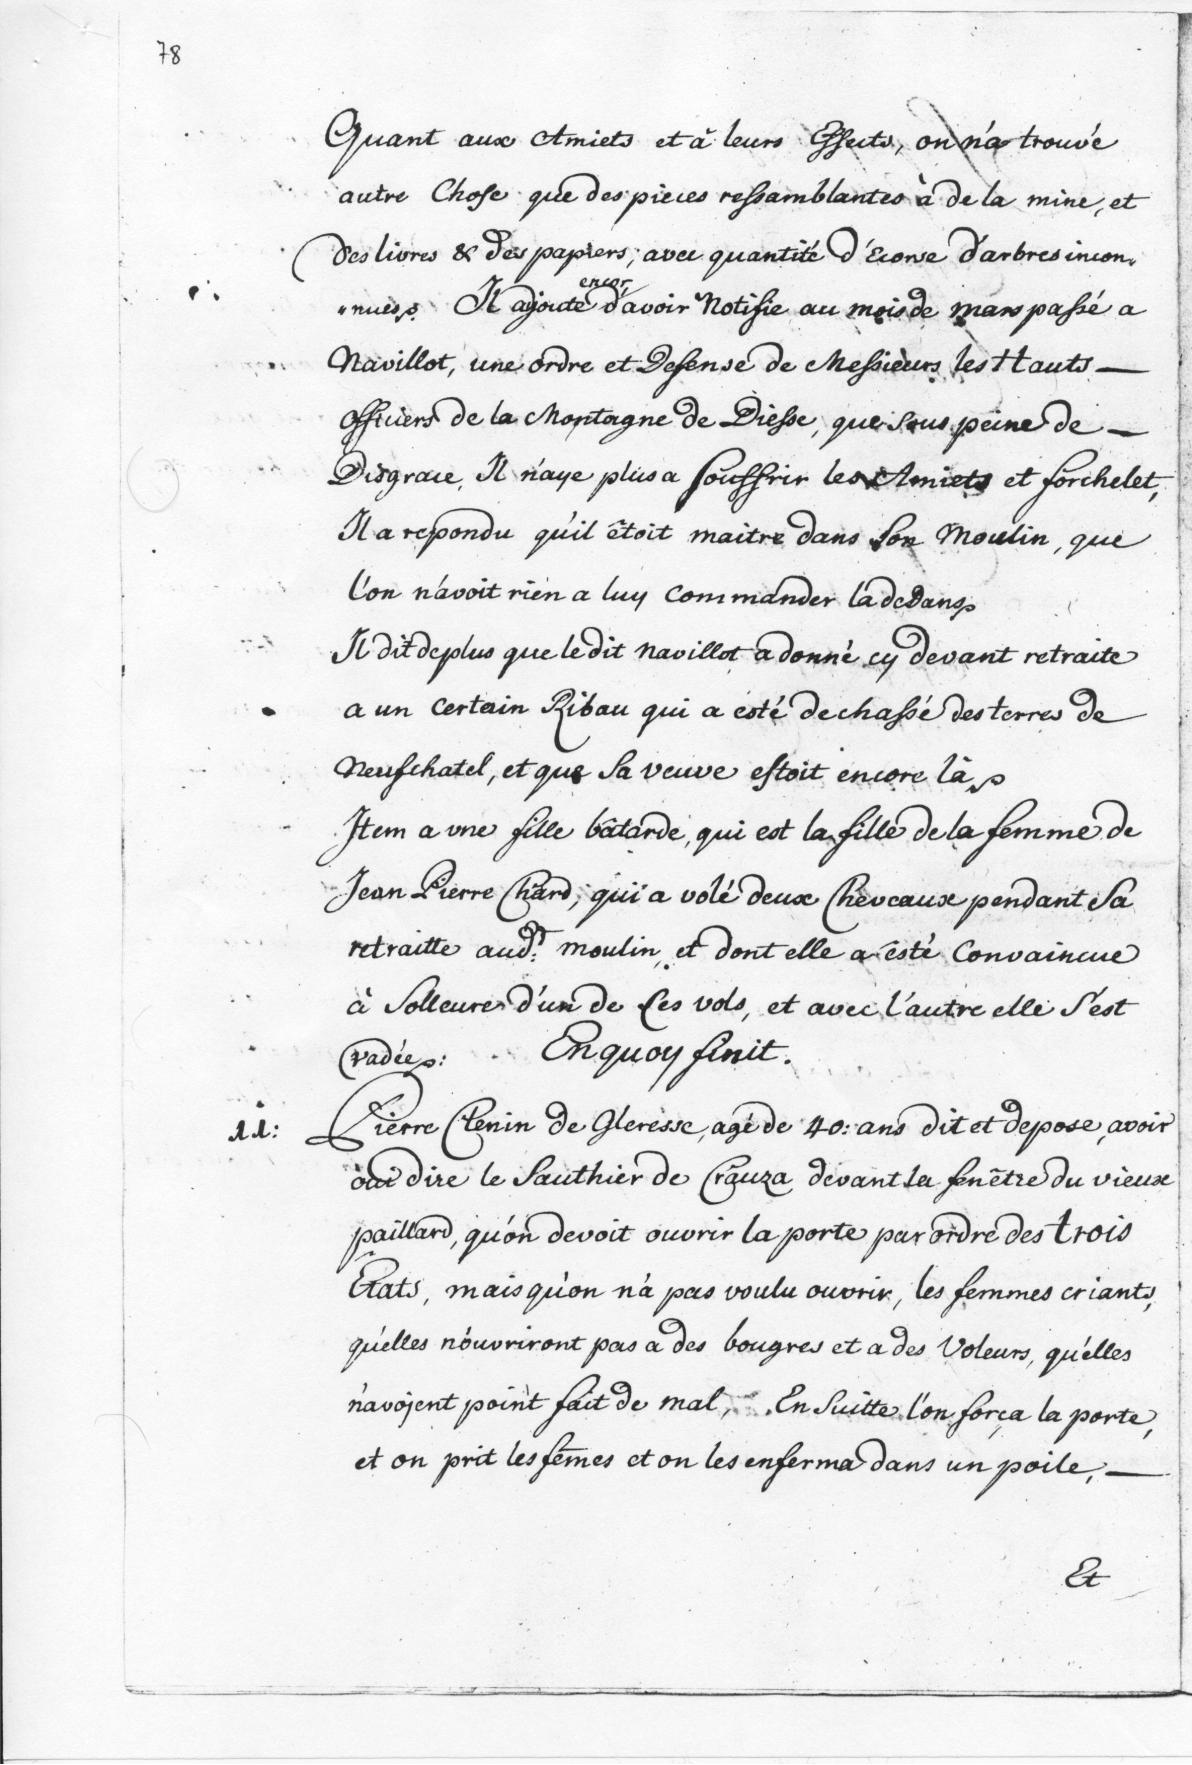 78
Quant aux Amiets et à leurs Effects, on n'a trouvé
autre Chose que des pieces ressamblantes à de la mine, et
des livres & des papiers, avec quantité d'Ecorse d'arbres incon„
„nues. Il ajoute encor d'avoir Notifie au mois de mars passé a
Navillot, une ordre et Defense de Messieurs les Hauts —
officiers de la Montagne de Diesse, que sous peine de —
Disgrace, Il n'aye plus a souffrir les Amiets et forchelet,
Il a repondu qu'il êtoit maitre dans son Moulin, que
l'on n'avoit rien a luy Commander là dedans
Il dit deplus que le dit Navillot a donné cy devant retraite
a un certain Ribau qui a esté dechassé des terres de
Neufchatel, et que sa veuve estoit encore là,
Item a une fille bâtarde, qui est la fille de la femme de
Jean Pierre Chard, qui a volé deux Cheveaux pendant sa
retraitte aud.t moulin, et dont elle a esté Convaincue
à Solleure d'un de ses vols, et avec l'autre elle s'est
evadée: En quoy finit.
11: Pierre Clenin de Gleresse, agé de 40: ans dit et depose, avoir
oui dire le Sauthier de Crauza devant la fenêtre du vieux
paillard, qu'on devoit ouvrir la porte par ordre des trois
Etats, mais qu'on n'a pas voulu ouvrir, les femmes criants,
qu'elles n'ouvriront pas a des bougres et a des Voleurs, qu'elles
n'avojent point fait de mal, En suitte l'on força la porte,
et on prit les fem̄es et on les enferma dans un poile, —
Et